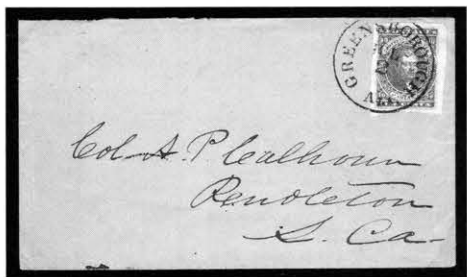 GREENSBOROUGH
ALA
Col. A. P. Calhoun
Pendleton
S. Ca-